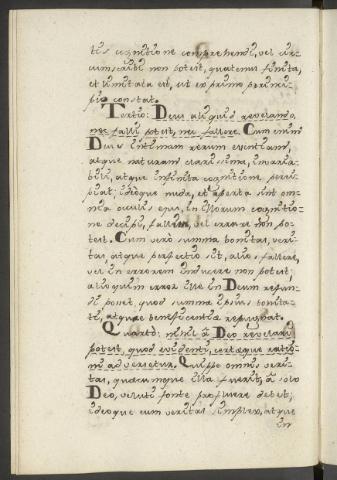 tus cognitione comprehendi, vel cir-
cumscribi non potest, quatenus finita,
et limitata est, ut ex primo princi-
pio constat.
Tertio: Deus aliquid revelando,
nec falli potest, nec fallere. Cum enim
Deus intimam rerum essentiam,
atque naturam clarissima, invaria-
bili, atque infinita cognitione perci-
piat; ideoque nuda, et aperta sint om-
nia oculis ejus, in illorum cognitio-
ne decipi, falli, vel errare non po-
test. Cum verò summa bonitas, veri-
tas, atque perfectio sit, alios fallere,
vel in errorem inducere non potest;
alioquim error ille in Deum refun-
di posset, quod summæ ipsius bonita-
ti, atque beneficentiæ repugnat.
Quartò: nihil à Deo revelari
potest, quod evidenti, certæque ratio-
ni adversetur. Quippe omnis veri-
tas, quæcumque illa fuerit, à solo
Deo, veluti fonte profluere debet;
ideoque cum veritas simplex, atque
in